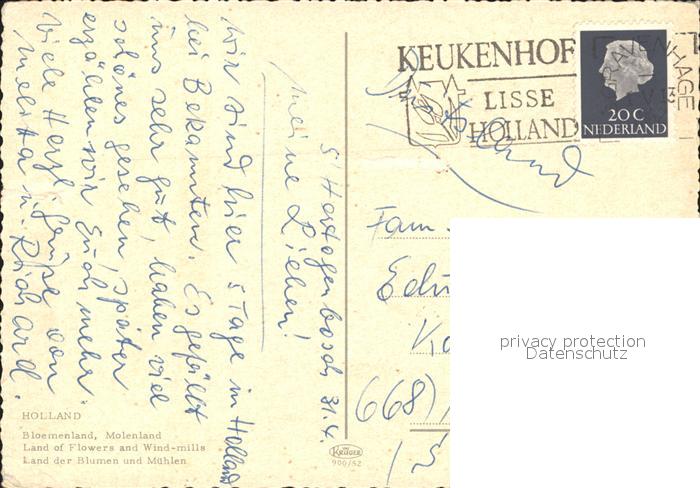 KEUKENHOF
LISSE
HOLLAND
GRAVENHAGE
20 C
NEDERLAND
S' Hertogenbosch 31.4.
Meine Lieben!
Wir sind hier 5 Tage in Holland
bei Bekannten. Es gefällt
uns sehr gut, haben viel
schönes gesehen, später
erzählen wir Euch mehr.
Viele Herzl. Grüße von
Melita u. Richard.
Fam
Edu
(668)
privacy protection
Datenschutz
HOLLAND
Bloemenland, Molenland
Land of Flowers and Wind-mills
Land der Blumen und Mühlen
KRÜGER
900/52